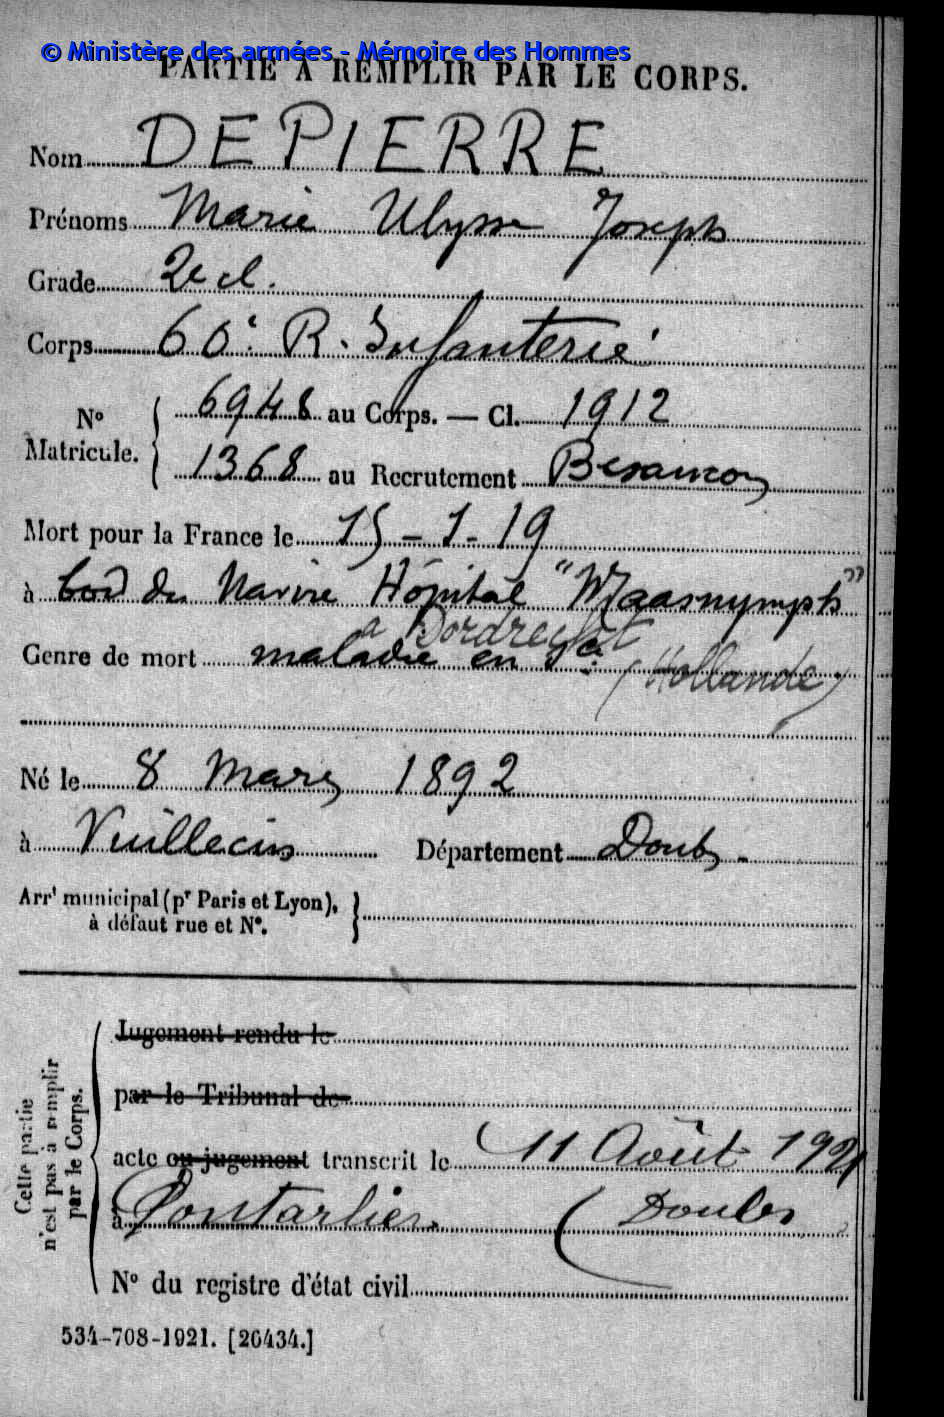 © Ministère des armées - Mémoire des Hommes
PARTIE À REMPLIR PAR LE CORPS.
Nom DEPIERRE
Prénoms Marie Ulysse Joseph
Grade 2e cl.
Corps 60e R. Infanterie
N° Matricule. { 6948 au Corps. — Cl. 1912
1368 au Recrutement Besançon
Mort pour la France le 15-1-19
à bord du Navire Hôpital "Maasnymph"
à Dordrecht
Genre de mort maladie en sce. (Hollande)
Né le 8 Mars 1892
à Vuillecin Département Doubs
Arrt municipal (pr Paris et Lyon),
à défaut rue et N°. }
Cette partie
n'est pas à remplir
par le Corps.
Jugement rendu le
par le Tribunal de
acte ou jugement transcrit le 11 Août 1921
à Pontarlier (Doubs
N° du registre d'état civil
534-708-1921. [26434.]